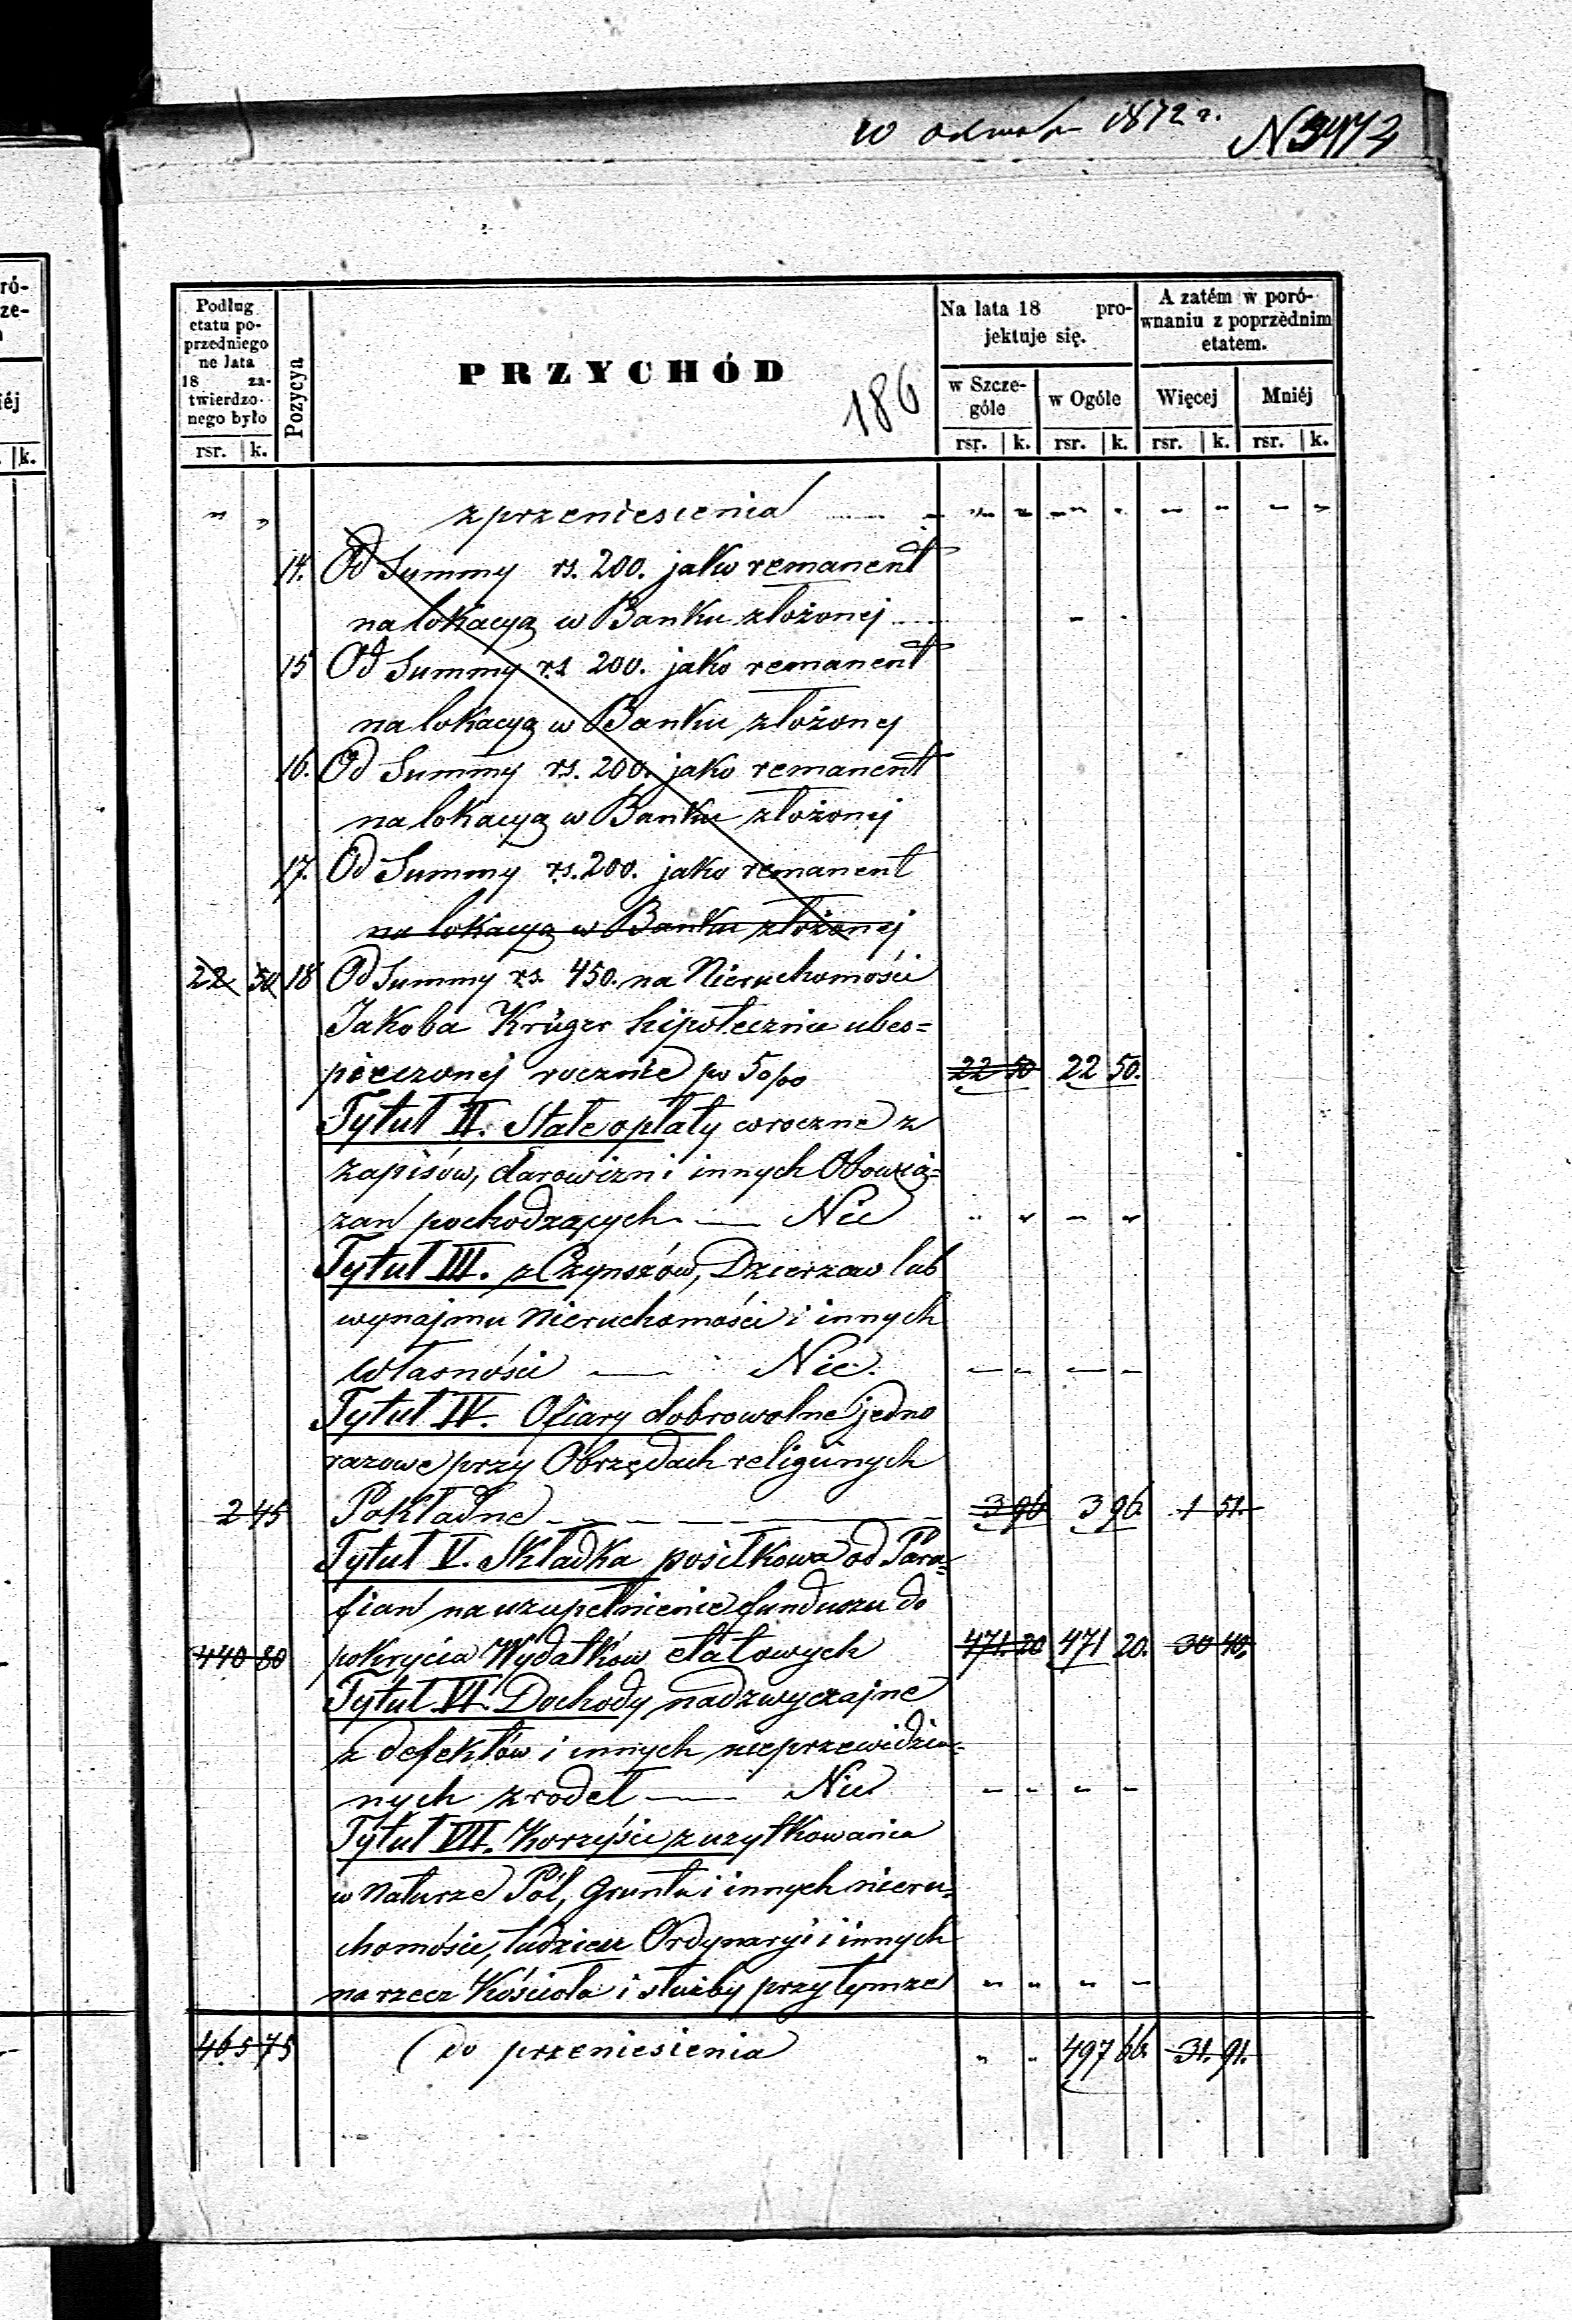 w 1872 r. N 3472
ró-
ze-
iéj
k.
Podług etatu poprzedniego ne lata 18 zatwierdzonego było
Pozycya
PRZYCHÓD
186
Na lata 18 projektuje się.
A zatém w porównaniu z poprzédnim etatem.
w Szczególe
w Ogóle
Więcej
Mniéj
rsr. k. rsr. k. rsr. k. rsr. k. rsr. k.
" " z przeniesienia
14. Od Summy rs. 200. jako remanent
na lokacyą w Banku złożonej
15 Od Summy rs. 200. jako remanent
na lokacyą w Banku złożonej
16. Od Summy rs. 200. jako remanent
na lokacyą w Banku złożonej
17. Od Summy rs. 200. jako remanent
na lokacyą w Banku złożonej
22 50 18 Od Summy rs. 450. na Nieruchomości
Jakoba Krüger hipotecznie ubes=
pieczonej rocznie po 5 o/oo 22 50 22 50.
Tytuł II. Stałe opłaty coroczne z
zapisów, darowizn i innych Obowią=
zań pochodzących — Nic
Tytuł III. z Czynszów, Dzierzaw lub
wynajmu Nieruchomości i innych
własności — Nic.
Tytuł IV. Ofiary dobrowolne jedno
razowe przy Obrzędach religiinych
2 45 Pokładne 3 96 3 96. 1 51.
Tytuł V. Składka posiłkowa od Para=
fian na uzupełnienie funduszu do
440 80 pokrycia Wydatków etatowych 471. 20 471 20. 30 40.
Tytuł VI. Dochody nadzwyczajne
z defektów i innych nieprzewidzia=
nych zrodeł — Nic
Tytuł VII. Korzyści z uzytkowania
w Naturze Pól, Gruntu i innych nieru=
chomości, tudziesz Ordynaryi i innych
na rzecz Kościoła i służby przy tymze
465 75 do przeniesienia " " 497 66. 31. 91.